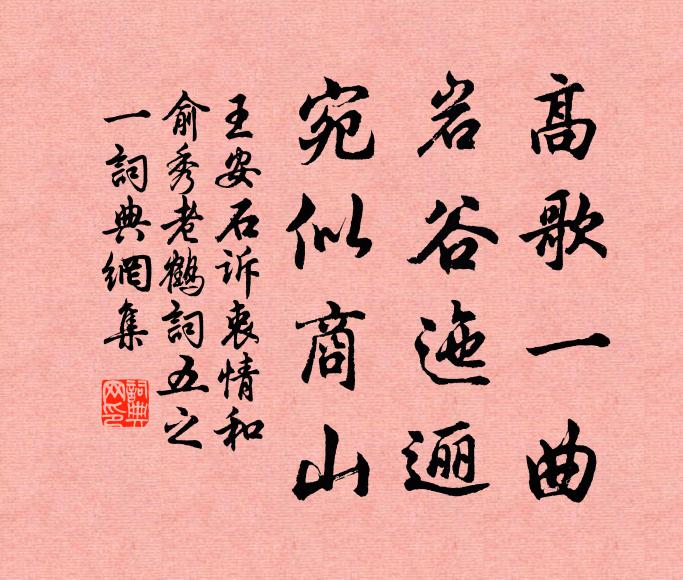 高歌一曲
岩谷迤逦
宛似商山
王安石诉衷情和
俞秀老鹤詞五之
一詞典網集
詞典网印